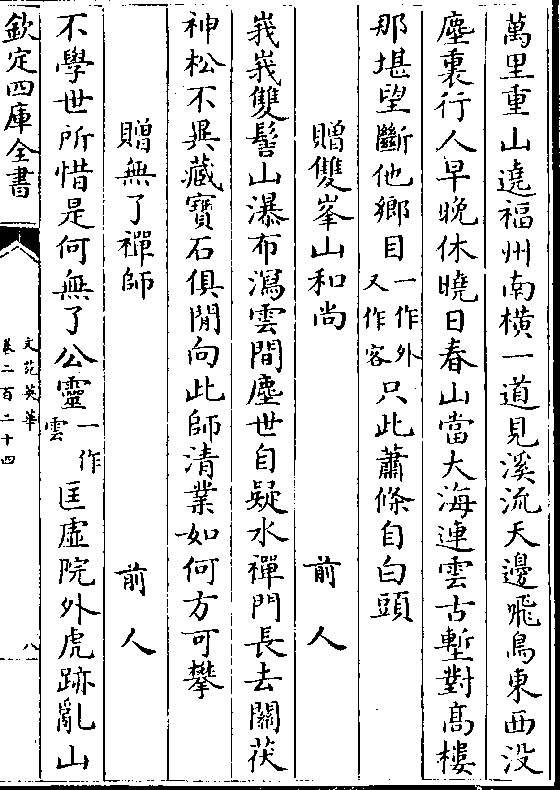 萬里重山遶福州南横一道見溪流天邊飛鳥東西没
塵裏行人早晚休曉日春山當大海連雲古塹對髙樓
那堪望斷他鄉目一作外又作客只此蕭條自白頭
贈雙峯山和尚 前人
峩峩雙髻山瀑布瀉雲間塵世自疑水禪門長去關茯
神松不異藏寳石俱閒向此師清業如何方可攀
贈無了禪師 前人
不學世所惜是何無了公靈一作雲匡虛院外虎跡亂山
欽定四庫全書
文苑英華
卷二百二十四
八